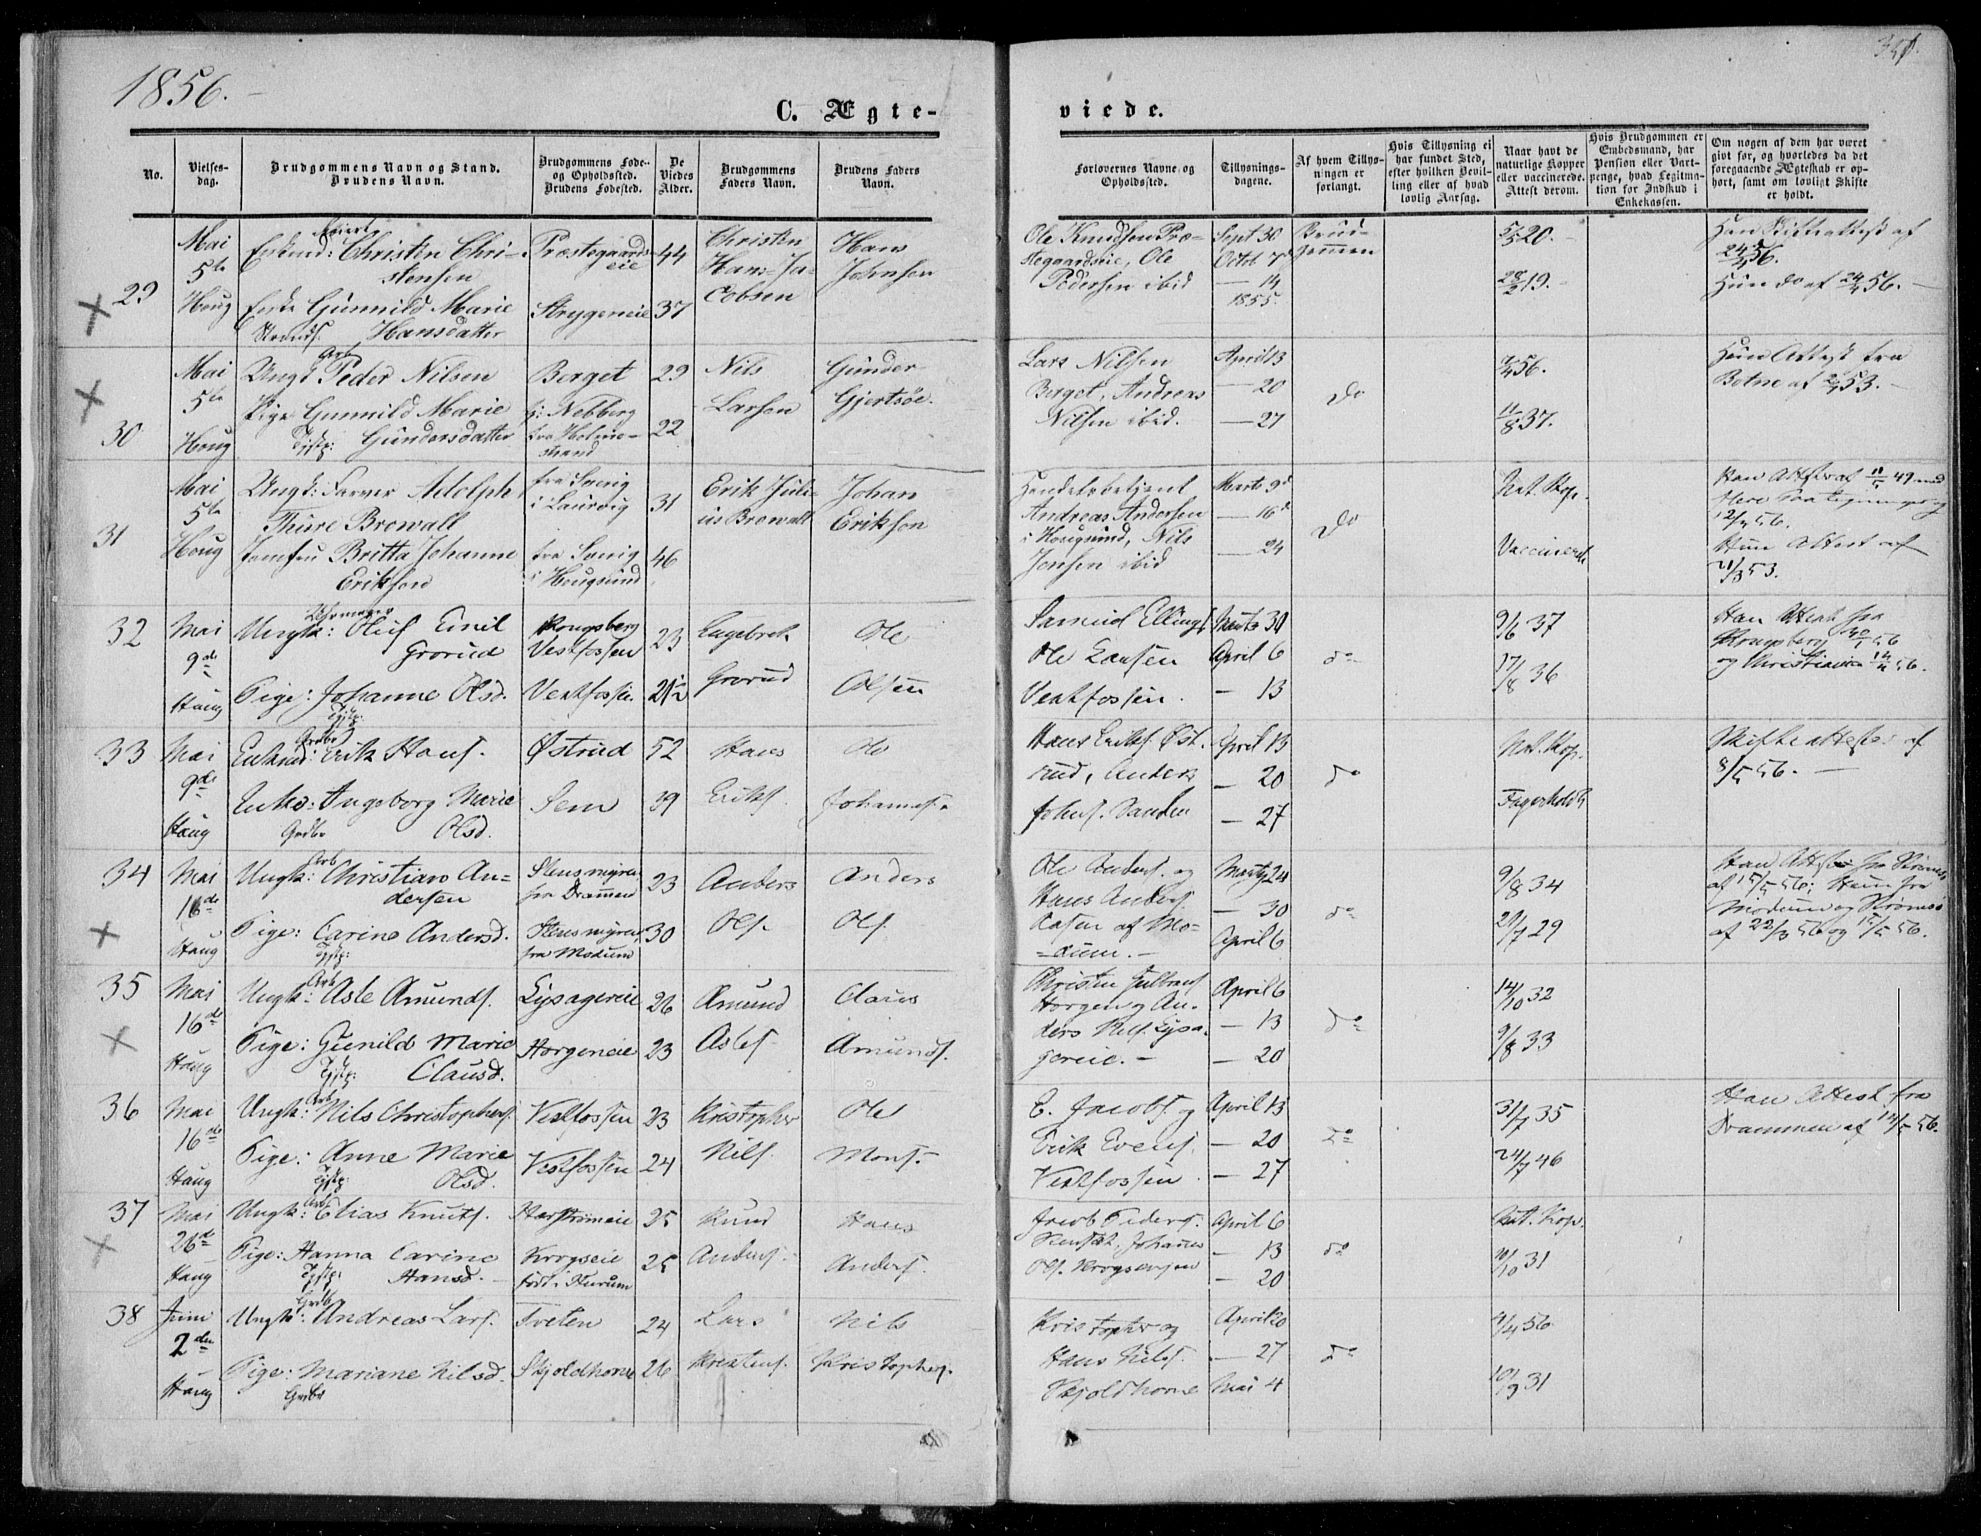 1856.
351.
C. Ægte-
viede.
No.
Vielses-
dag.
Brudgommens Navn og Stand.
Brudens Navn.
Brudgommens Føde-
og Opholdssted.
Brudens Fødested.
De
Viedes
Alder.
Brudgommens
Faders Navn.
Brudens Faders
Navn.
Forlovernes Navne og
Opholdssted.
Tillysnings-
dagene.
Af hvem Tillys-
ningen er
forlangt.
Hvis Tillysning ei
har fundet Sted,
efter hvilken Bevil-
ling eller af hvad
lovlig Aarsag.
Naar havt de
naturlige Kopper
eller vaccinerede.
Attest derom.
Hvis Brudgommen er
Embedsmand, har
Pension eller Vart-
penge, hvad Legitima-
tion for Indskud i
Enkekassen.
Om nogen af dem har været
gift før, og hvorledes da det
foregaaende Ægteskab er op-
hørt, samt om lovligt Skifte
er holdt.
29
Mai
5te
Houg
Enkmd: Christen Chri-
stensen
Gunnild Marie
Hansdatter
Præstegaards-
eie
Strygereie
44
37
Christen
Hans Ja-
cobsen
Hans
Johnsen
Ole Knudsen Præ-
stegaardseie, Ole
Pedersen ibid
Sept 30
Octob 7
— 14
1855.
Brud-
gommen
5/5 20.
28/2 19.
Han Skifteattest af
24/4 56.
Hun do af 24/4 56.
30
Mai
5te
Houg
Arb
Ungk Peder Nilsen
Pige Gunnild Marie
Tjstp: Gundersdatter
Berget
Nebberg
fra Holme-
strand
29
22
Nils
Larsen
Gunder
Gjertsøe.
Lars Nilsen
Berget, Andreas
Nilsen ibid.
April 13
— 20
— 27
Do
56.
11/8 37.
Hun Attest fra
Botne af 53.
31
Mai
5te
Houg
Ungk: Farver Adolph
Thure Browall
Jomfru Britta Johanne
Erikson
i Laurvig
i Hougsund
31
46
Erik Juli-
us Browall
Johan
Erikson
Handelsbetjent
Andreas Andersen
i Hougsund, Nils
Jensen ibid
Marts 9d
— 16d
— 24
Do
Nat. Kop.
Vaccineret
12/5 56.
Hun Attest af
21/3 53.
32
Mai
9de
Haug
Uhrmager
Ungk: Oluf Emil
Grorud
Pige: Johanne Olsd.
Tjstp:
Kongsberg
Vestfossen
Vestfossen
23
21½
Engebret
Grorud
Ole
Olsen
Samuel Ellings
Ole Larsen
Vestfossen.
Marts 30
April 6
— 13
do
9/6 37
17/8 36
Han Attest fra
Kongsberg 30/1 56
og Christiania 14/4 56.
33
Mai
9de
Haug
Grdbr
Enkmd: Erik Hans.
Enke: Ingeborg Marie
Grdbr Olsd.
Østrud
Sem
52
39
Hans
Eriks.
Ole
Johannes.
Hans Eriks. Øst-
rud, Anders
Johns. Sanden
April 13
— 20
— 27
do
Nat. Kop.
Skifteattester af
8/5 56. —
34
Mai
16de
Haug
Arb
Ungk: Christian An-
dersen
Pige: Carine Andersd.
Tjstp:
Stensmyren
fra Drammen
Stensmyren,
fra Modum
23
30
Anders
Ols.
Anders
Ols.
Ole Anders. og
Hans Anders.
Aasen af Mo-
dum. —
Marts 24
— 30
April 6
do
9/8 34
29/7 29
Han Attester fra Strømsø
af 15/5 56; Hun fra
Modum og Strømsø
af 22/3 56 og 15/5 56.
35
Mai
16de
Haug
Arb
Ungk: Asle Amunds.
Pige: Gunild Marie
Tjstp: Clausd.
Lysagereie
Horgeneie
26
23
Amund
Asles.
Claus
Amunds.
Christen Gulbrans.
Horgen og An-
ders Nils. Lysa-
gereie. —
April 6
— 13
— 20
do
14/10 32
9/8 33
36
Mai
16de
Haug
Arb
Ungk: Nils Christophers.
Pige: Anne Marie
Tjstp: Olsd.
Vestfossen
Vestfossen
23
24
Kristopher
Nils.
Ole
Mons.
E. Jacobs. og
Erik Evens.
Vestfossen
April 13
— 20
— 27
do
31/7 35
24/7 46
Han Attest fra
Drammen af 14/5 56.
37
Mai
26de
Haug
Arb
Ungk: Elias Knuts.
Pige: Hanna Carine
Tjstp: Hansd. —
Krogseie
født i Hurum
25
25
Knud
Anders.
Hans
Anders.
Jacob Peders.
Johannes
Ols. Krogsengen
April 6
— 13
— 20
do
Nat. Kop.
10/10 31
38
Juni
2den
Haug
Grdbr
Ungk: Andreas Lars.
Pige: Mariane Nilsd.
Grdbr
Tveten
Skjoldhorne
24
26
Lars
Kristens.
Nils
Kristophers.
Kristopher og
Hans Nils.
Skjoldhorne
April 20
— 27
Mai 4
do
9/4 56
10/9 31